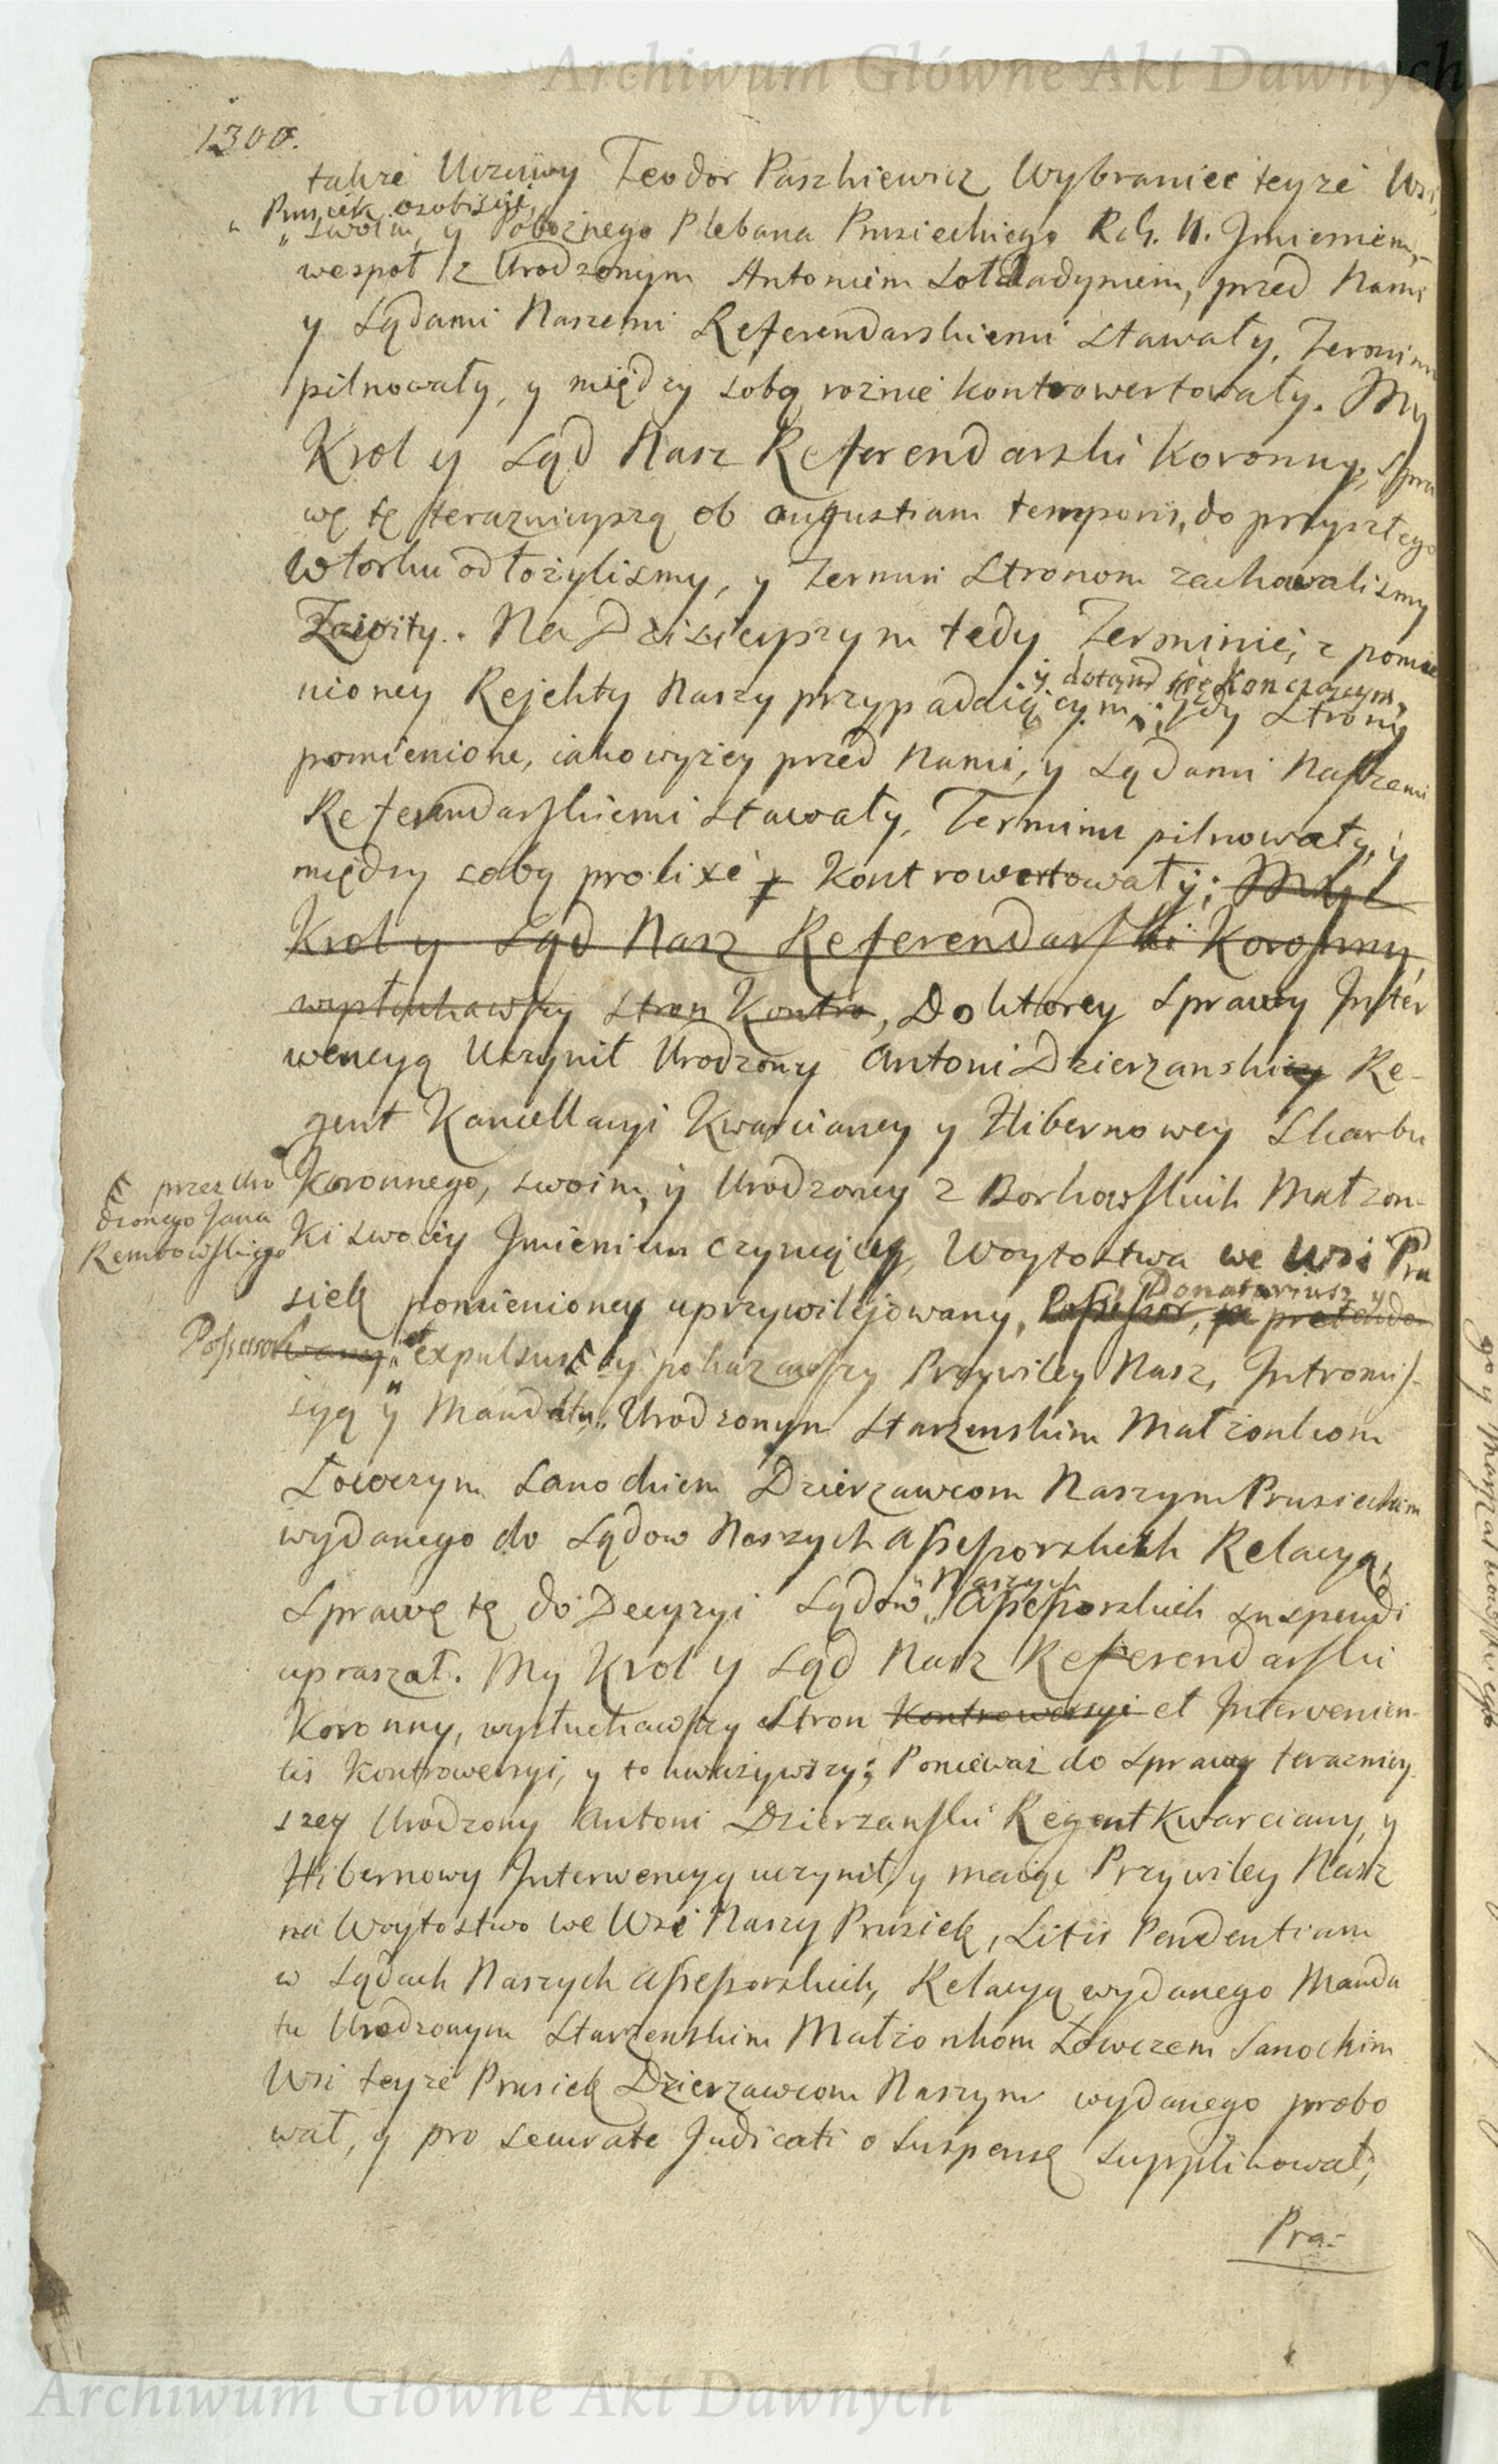 Archiwum Główne Akt Dawnych
1300.
takze Uczciwy Teodor Paszkiewicz Wybraniec teyze Wsi,
Prusiek osobiscie,
„ swoim, y Poboznego Plebana Prusieckiego R.G.U. Jmieniem,
wespoł z Urodzonym Antonim, przed Nami
y Sądami Naszemi Referendarskiemi stawały, Terminu
pilnowały, y między sobą roznie kontrowertowały. My
Krol y Sąd Nasz Referendarski Koronny, Spra
wę tę teraznieyszą ob angustiam temporis, do przyszłego
Wtorku odłozylismy, y Termin Stronom zachowalismy
Zawity. Na Dzisieyszym tedy Terminie, z pomie
y dotąd się konczącym,
nioney Rejekty Naszy przypadaiącym, gdy Strony
pomienione, iako wyzey przed Nami, y Sądami Naszemi
Referendarskiemi stawały, Terminu pilnowały, y
między sobą prolixè Kontrowertowały; My
Krol y Sąd Nasz Referendarski Koronny,
wysłuchawszy Stron Kontro, Do ktorey Sprawy Inter
wencyą Uczynił Urodzony Antoni Dzierzanski Re-
gent Kancellaryi Kwarcianey y Hibernowey Skarbu
Koronnego, swoim, y Urodzoney z Borkowskich Małzon-
przez Uro
dzonego Jana
Rembowskiego
ki swoiey Jmieniem czyniący, Woytostwa we Wsi Pru
siek pomienioney uprzywilejowany, Possessor, pretendo
Donatariusz y
Possessor wany, et expulsus, y pokazawszy Przywiley Nasz, Intromis-
syą y Mandatu, Urodzonym Starzenskim Małzonkom
Łowczym Sanockiem Dzierzawcom Naszym Prusieckim
wydanego do Sądow Naszych Assessorskich Relacyą,
Naszych
Sprawę tę do Decyzyi Sądow Assessorskich suspendi
upraszał. My Krol y Sąd Nasz Referendarski
Koronny, wysłuchawszy Stron Kontrowersyi et Intervenien-
tis Kontrowersyi, y to uwazywszy; Poniewaz do Sprawy terazniey-
szey Urodzony Antoni Dzierzanski Regent Kwarciany, y
Hibernowy Interwencyą uczynił, y maiąc Przywiley Nasz
na Woytostwo we Wsi Naszy Prusiek, Litis Pendentiam
w Sądach Naszych Assessorskich, Relacyą wydanego Manda
tu Urodzonym Starzenskim Małzonkom Łowczem Sanockim
Wsi teyze Prusiek Dzierzawcom Naszym wydanego probo
wał, y pro securitate Judicati o Suspensę supplikował;
Pra-
Archiwum Główne Akt Dawnych